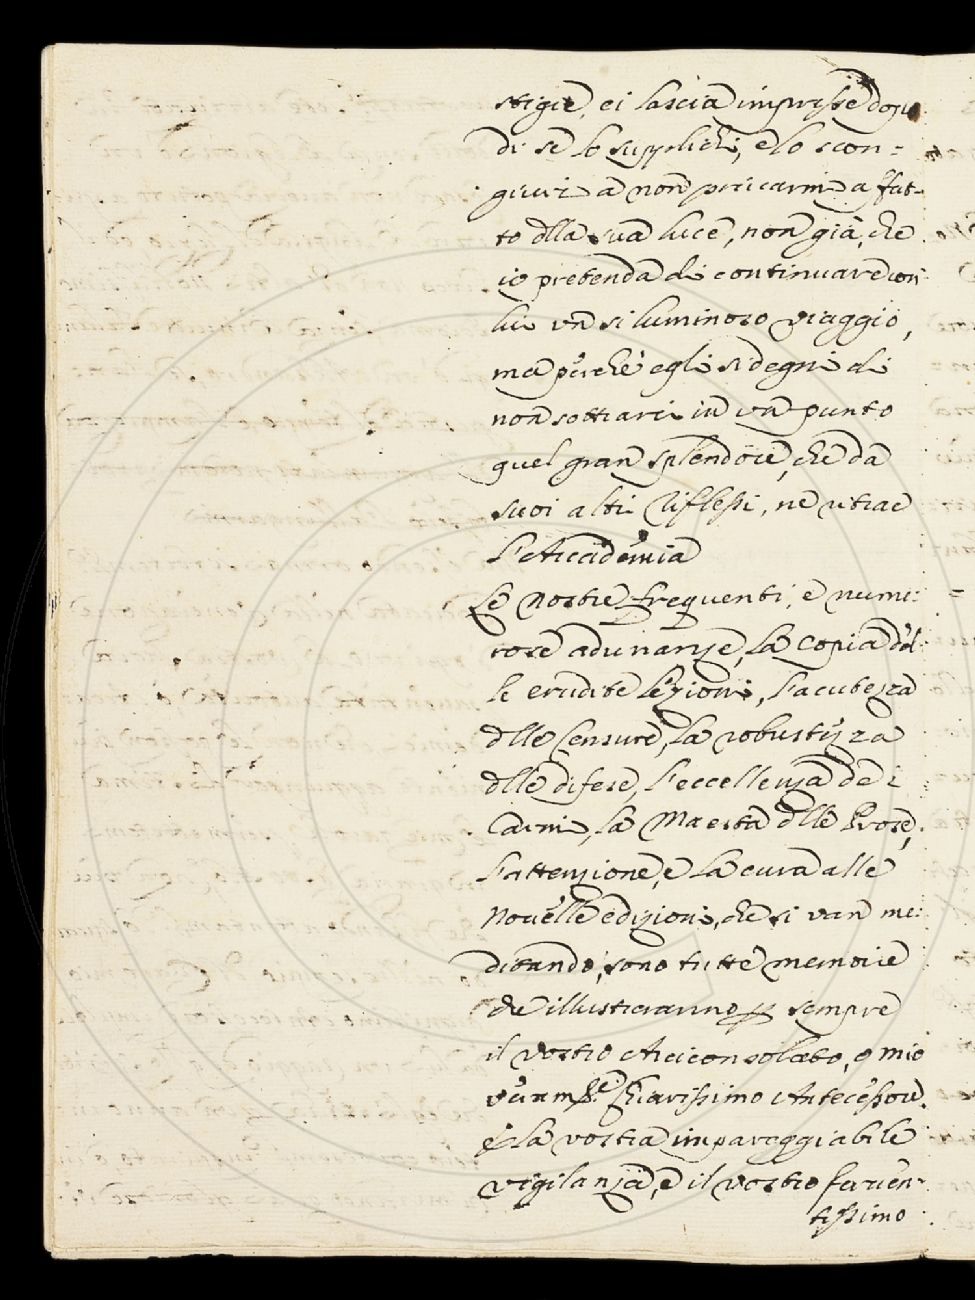 stigie, ei lascia impresse dogn
di se lo supplichi, e lo scon=
giuri a non privarmi a fat-
to dlla sua luce, non già, che
io pretenda di continuare con
lui un si luminoso viaggio,
ma pérchè egli si degni di
non sottrarci in un punto
quel gran splendore, che da
suoi alti riflessi, ne ritrae
l'Accadémia
Le nostre frequenti, e nume:
rose adunanze, la copia dél:
le erudite lézioni, l'acutezza
dlle Censure, la robustézza
dlle difese, l'eccellenza de i
Carmi, la Maestà dlle Prose,
l'attenzione, e la cura alle
nouélle edizioni, che si van me:
ditando, sono tutte memorie
che illustreranno p sempre
il vostro Arciconsolato, o mio
véram.te Chiarissimo Antecéssore.
é la vostra impareggiabile
vigilanza, e il vostro feruen-
tissimo